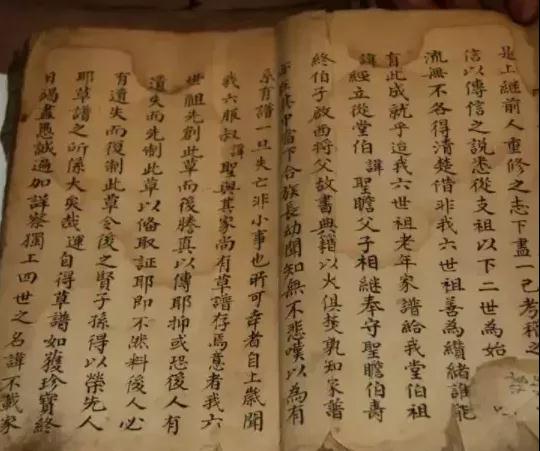 是上繼前人重修之志下盡一己考稽之
信以傳信之說悉從支祖以下二世為始
流無不各得清楚借非我六世祖善為纘緒誰能
有此成就乎迨我六世祖老年家譜給我堂伯祖
諱經立從堂伯諱聖瞻父子相繼奉守聖瞻伯壽
終伯子啟西將父故書典籍以火俱焚孰知家譜
在其中當下合族長幼聞知無不悲嘆以為有
原有譜一旦失亡非小事也所可幸者自上感聞
我六服叔諱聖與其家尚有草譜存焉意者我六
世祖先創此草而後謄真以傳耶抑或恐後人有
遺失而先制此草以俻取証耶即不然料後人必
有遺失而復制此草令後之賢子孫得以榮先人
耶草譜之所係大矣哉運自得草譜如獲珍寶終
日竭盡愚誠過加詳察獨上四世之名諱不載家